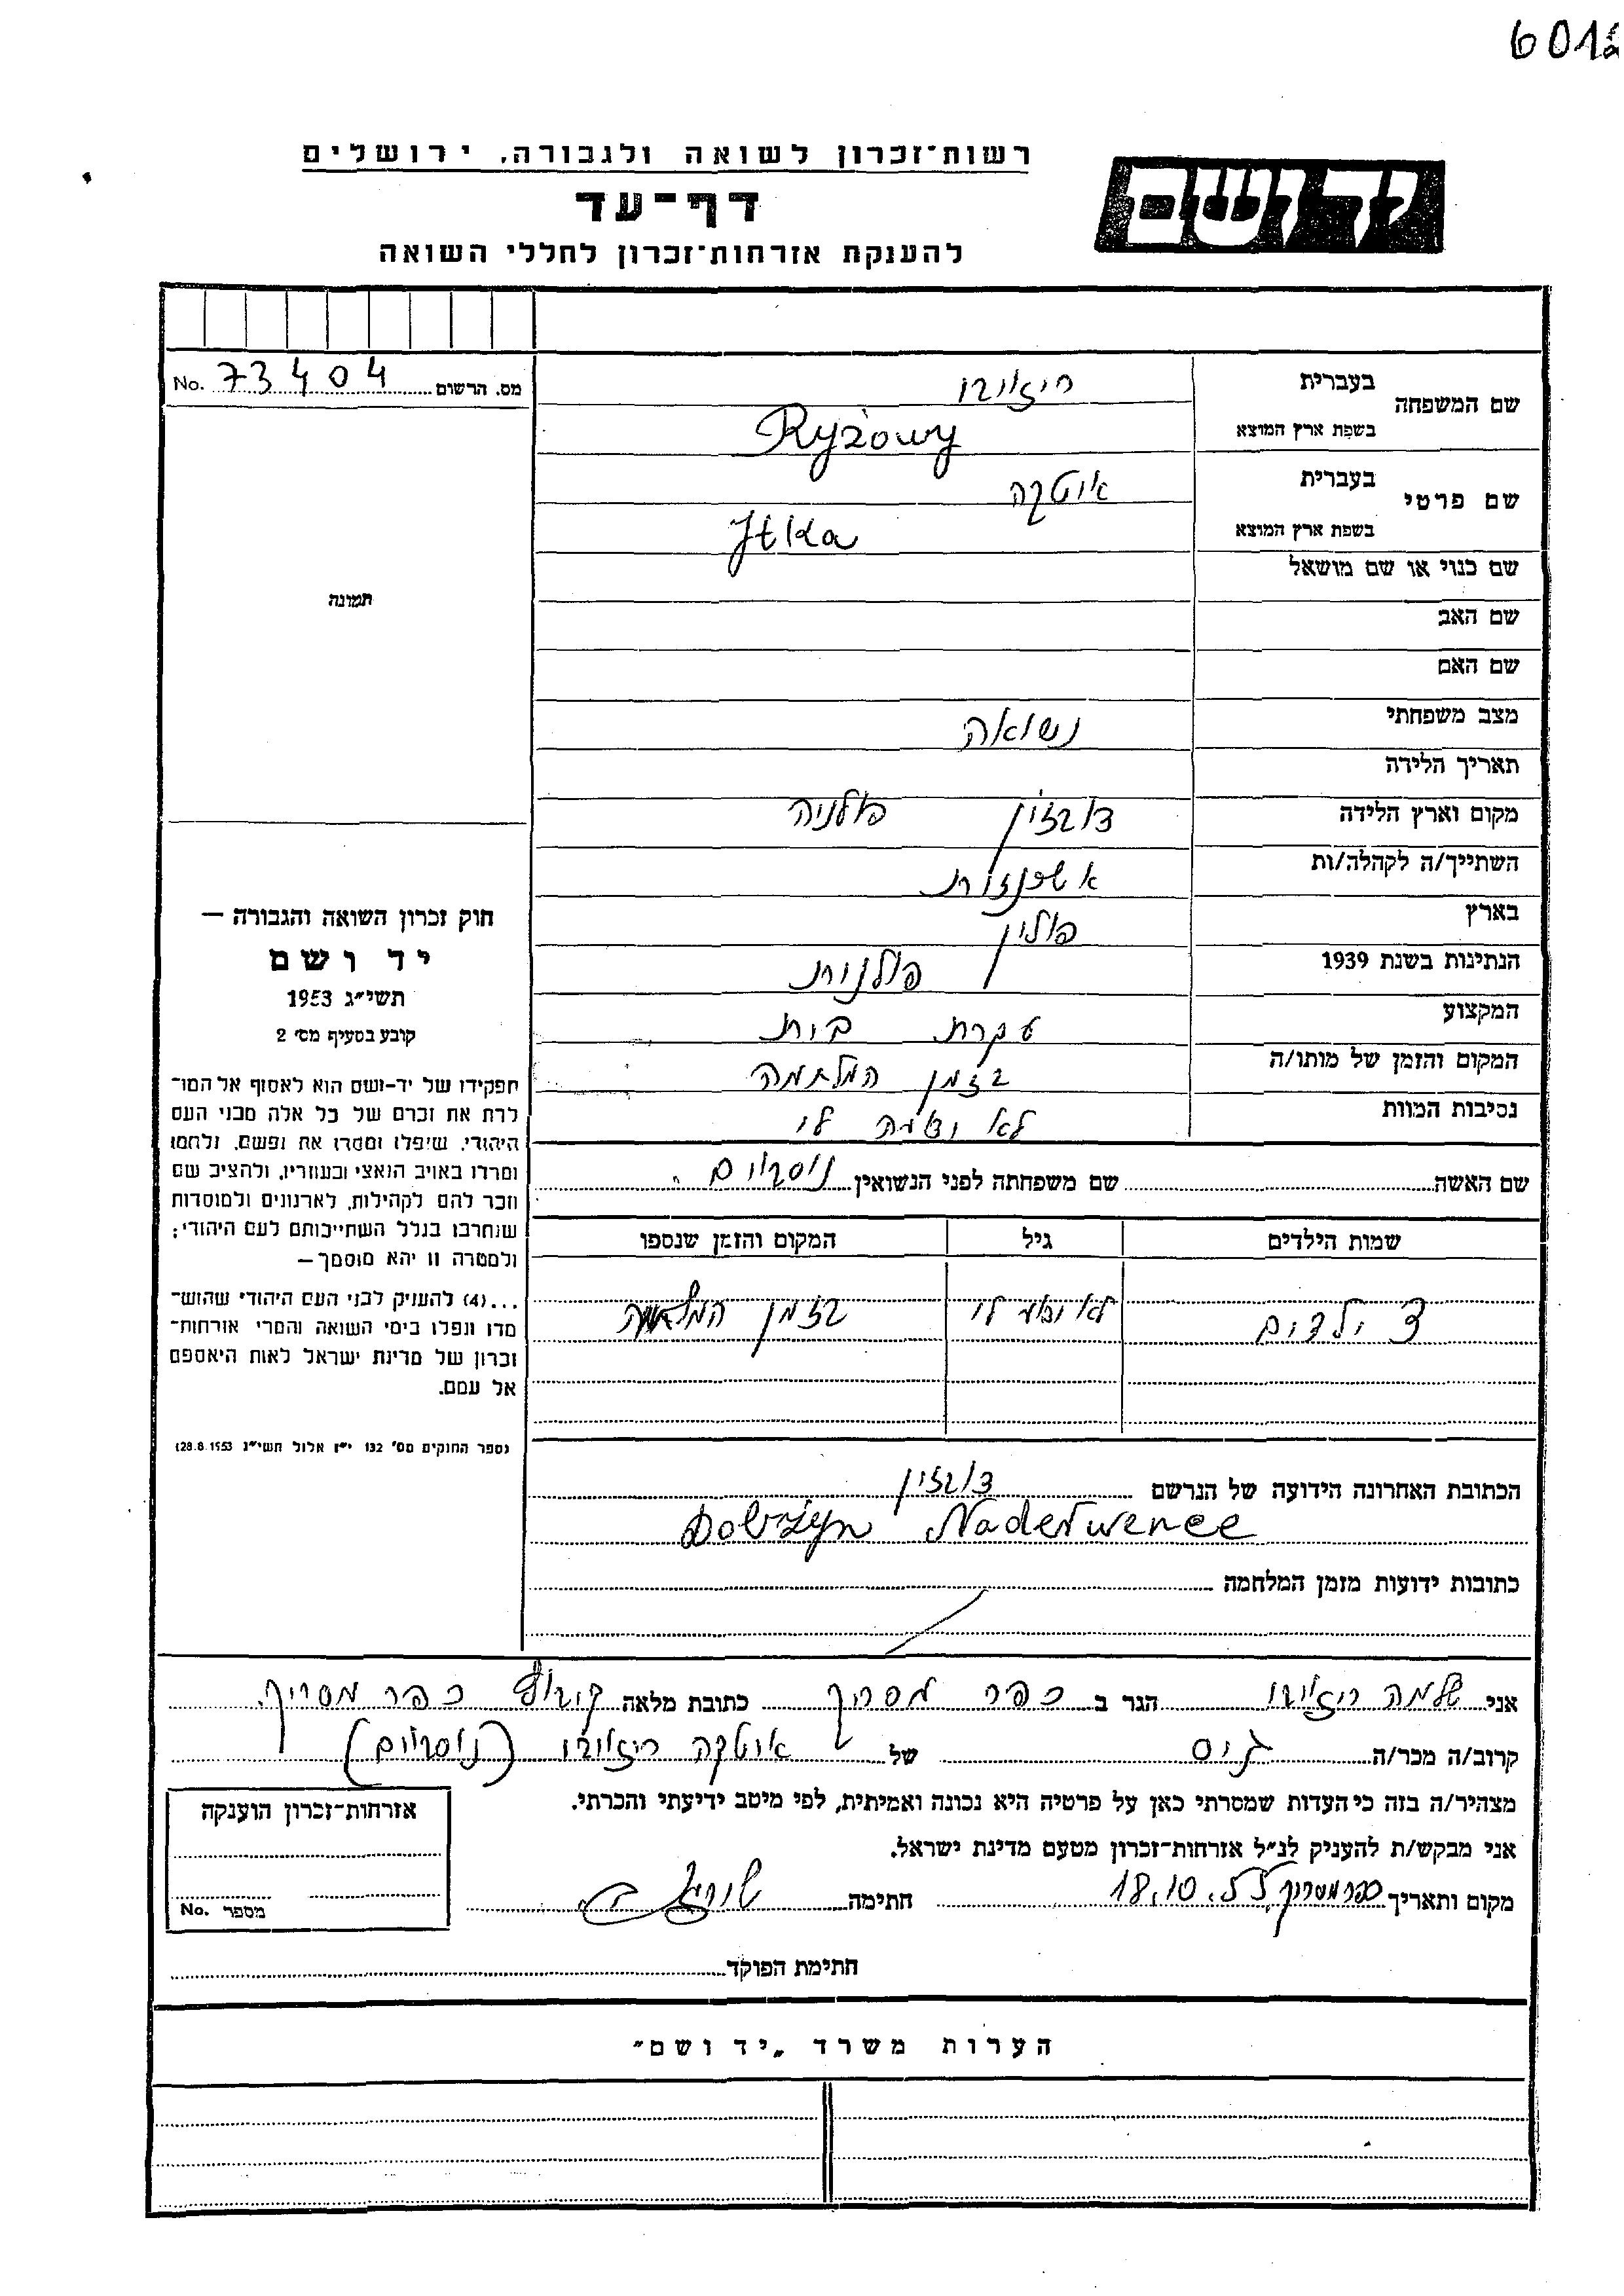 6012
רשות־זכרון לשואה ולגבורה, ירושלים
יד ושם
דף־עד
להענקת אזרחות־זכרון לחללי השואה
שם המשפחה בעברית ריזובי
בשפת ארץ המוצא Ryżowy
מס. הרשום 73404 No.
שם פרטי בעברית איטקה
בשפת ארץ המוצא Jtka
שם כנוי או שם מושאל
תמונה
שם האב
שם האם
מצב משפחתי נשואה
תאריך הלידה
מקום וארץ הלידה דובזין פולניה
השתייך/ה לקהלה/ות אשכנזית
בארץ פולין
הנתינות בשנת 1939 פולנית
המקצוע עקרת בית
המקום והזמן של מותו/ה בזמן המלחמה
נסיבות המוות לא ידוע לי
שם האשה שם משפחתה לפני הנשואין
שמות הילדים גיל המקום והזמן שנספו
ילדים לא ידוע לי בזמן המלחמה
הכתובת האחרונה הידועה של הנרשם דובזין
Dobrżyn Naderwence
כתובות ידועות מזמן המלחמה
חוק זכרון השואה והגבורה —
יד ושם
תשי״ג 1953
קובע בסעיף מס׳ 2
תפקידו של יד־ושם הוא לאסוף אל המו־
לדת את זכרם של כל אלה מבני העם
היהודי, שנפלו ומסרו את נפשם, נלחמו
ומרדו באויב הנאצי ובעוזריו, ולהציב שם
וזכר להם לקהילות, לארגונים ולמוסדות
שנחרבו בגלל השתייכותם לעם היהודי;
ולמטרה זו יהא מוסמך—
...(4) להעניק לבני העם היהודי שהוש־
מדו ונפלו בימי השואה והמרי אזרחות־
זכרון של מדינת ישראל לאות היאספם
אל עמם.
(ספר החוקים מס׳ 132 י״ז אלול תשי״ג 28.8.1953)
אני שלמה ריזובי הגר ב כפר מסריק כתובת מלאה קיבוץ כפר מסריק
קרוב/ה מכר/ה גיס של איטקה ריזובי
מצהיר/ה בזה כי העדות שמסרתי כאן על פרטיה היא נכונה ואמיתית, לפי מיטב ידיעתי והכרתי.
אני מבקש/ת להעניק לנ״ל אזרחות־זכרון מטעם מדינת ישראל.
מקום ותאריך כפר מסריק 18.10.55 חתימה
אזרחות־זכרון הוענקה
מספר No.
חתימת הפוקד
הערות משרד „יד ושם״